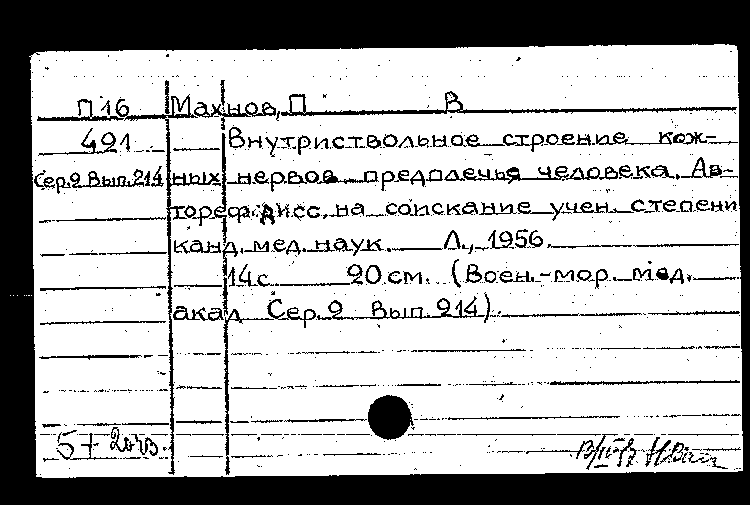 П16 Махнов, П В
421 Внутриствольное строение кож-
Сер.2 Вып.214 ных нервов предплечья человека. Ав-
тореф. дисс. на соискание учен. степени
канд. мед. наук. Л., 1956.
14 с 20 см. (Воен.-мор. мед.
акад Сер. 2 Вып. 214).
5+